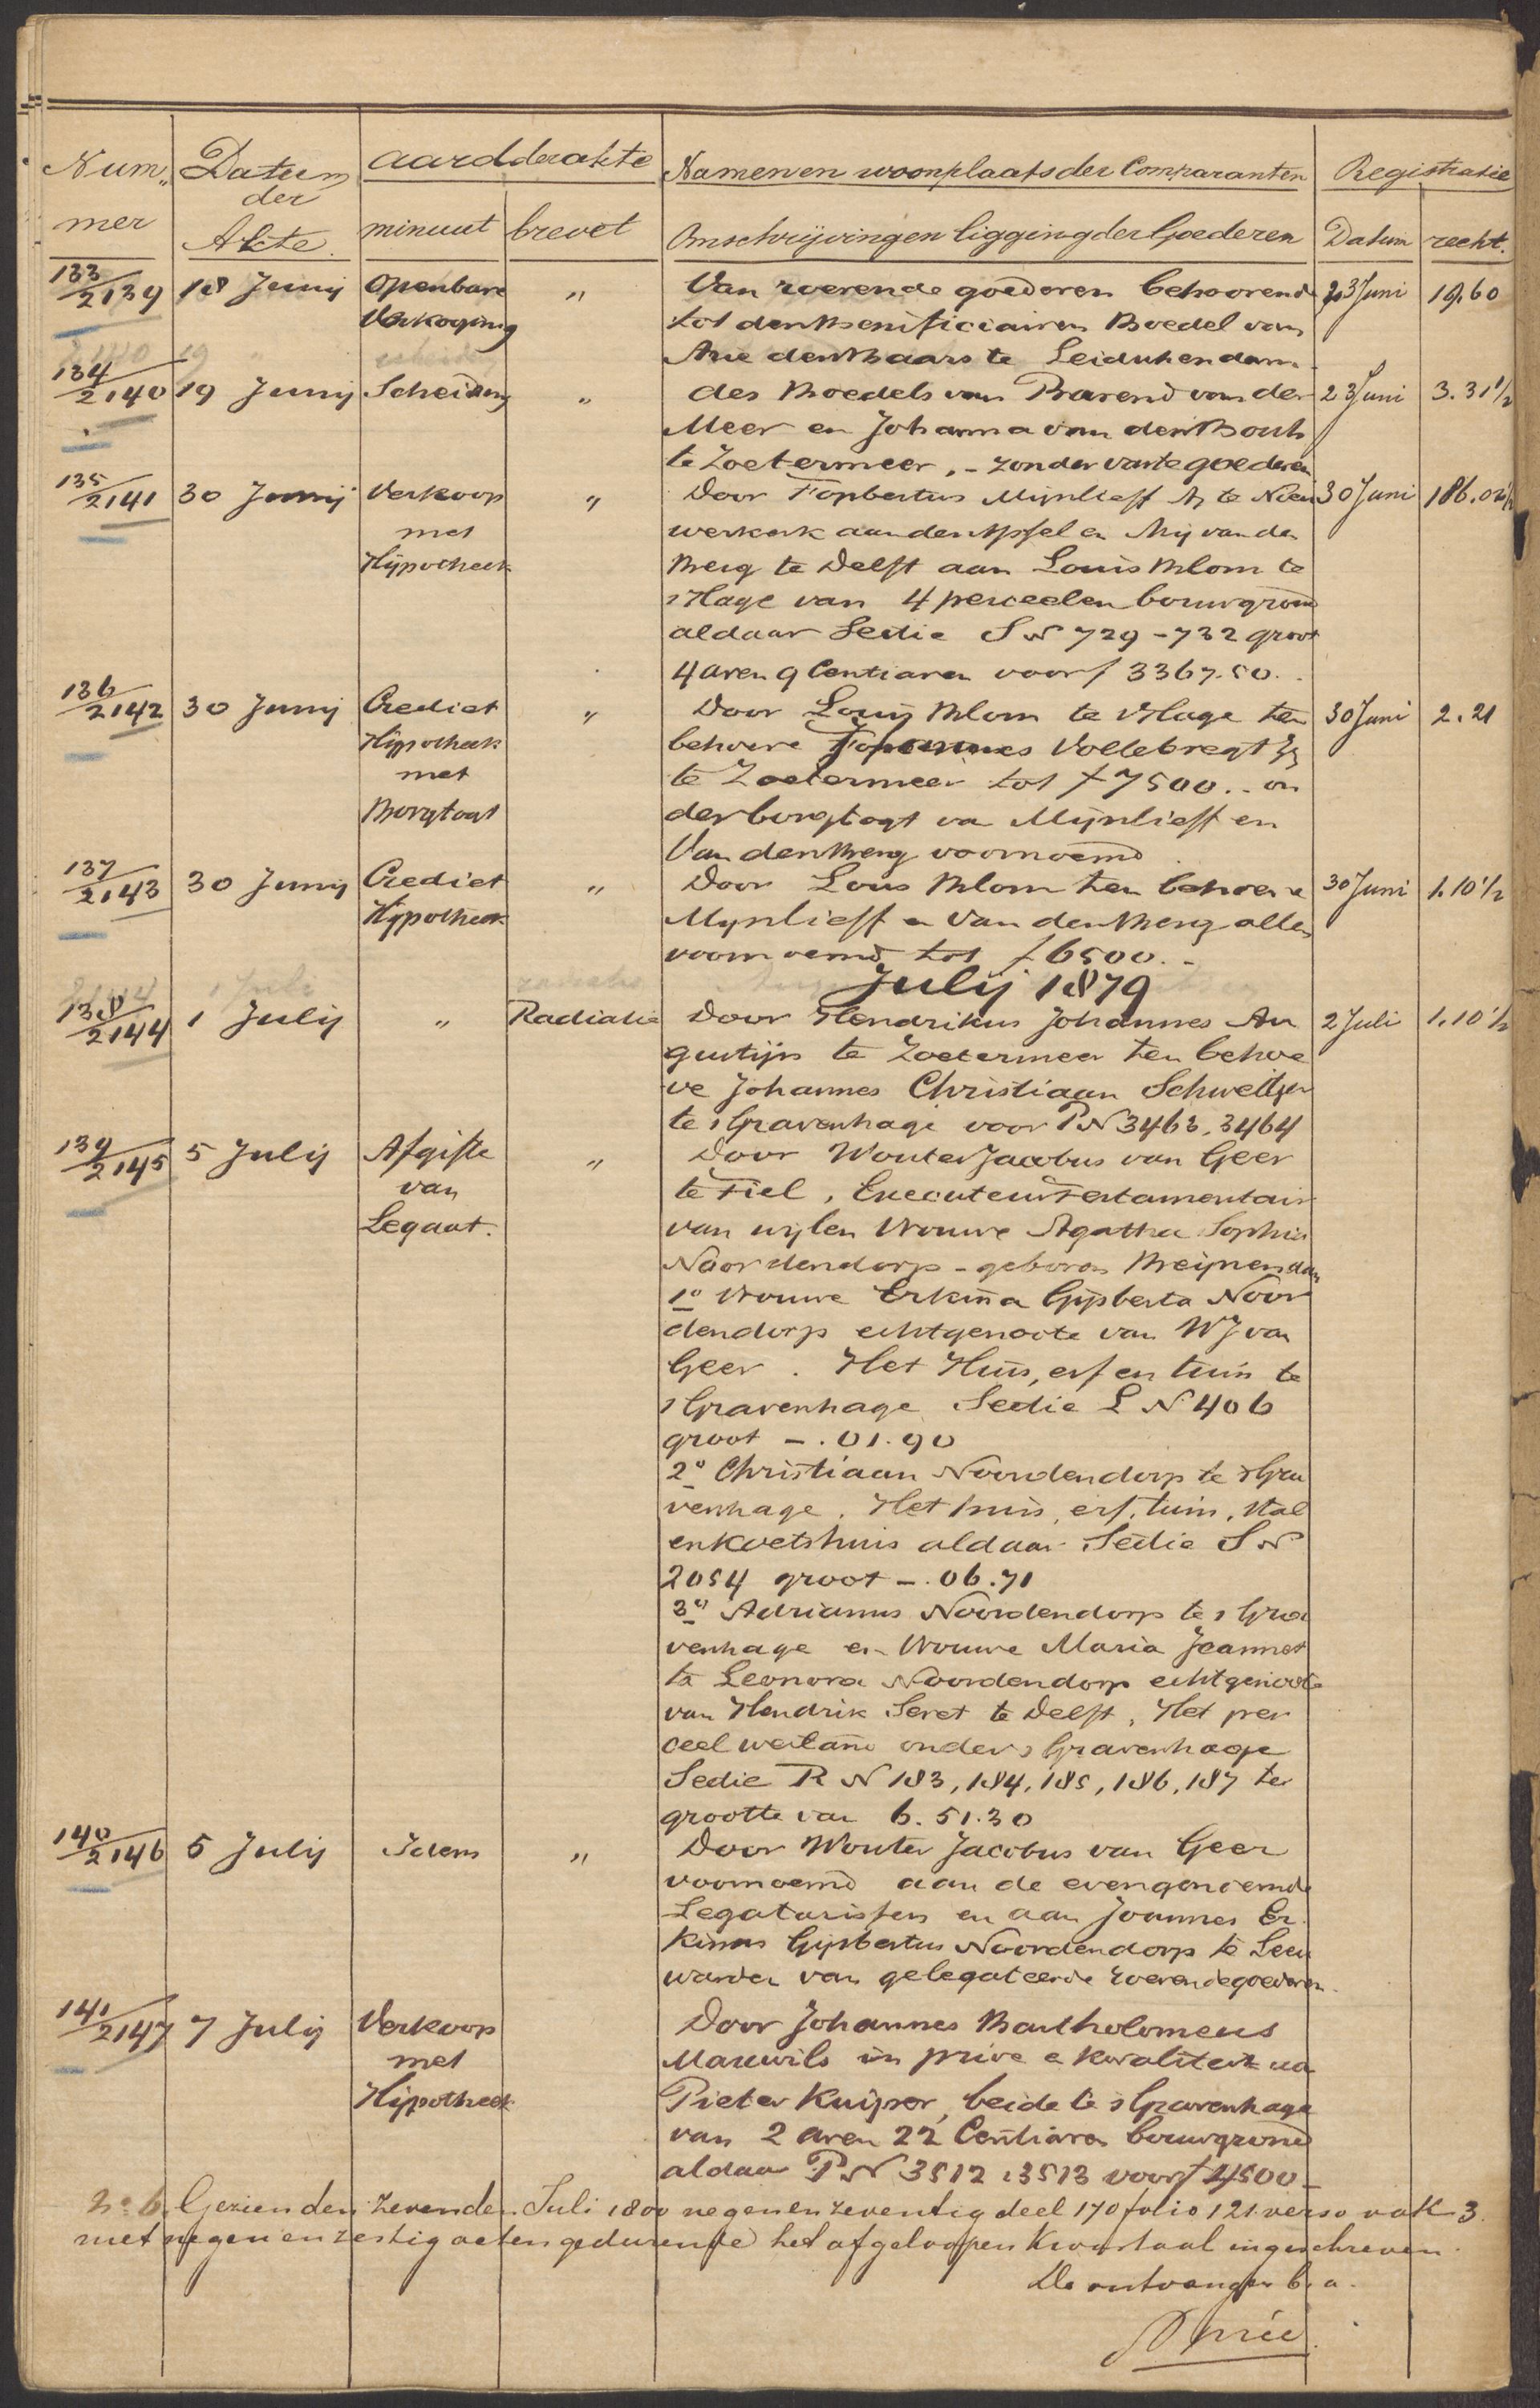 Num„ Datum aard der akte Namen en woonplaats der Comparanten Registratie
der
mer Akte minuut brevet Omschrijving en ligging der Goederen Datum recht.
133/2139 18 Junij Openbare „ Van roerende goederen behoorende 23 Juni 19,60
Verkoping tot den Benificiairen Boedel van
Arie den Baars te Leidschendam.
134/2140 19 Junij Scheiding „ des Boedels van Barend van der 23 Juni 3.31½
Meer en Johanna van den Bosch
te Zoetermeer, - zonder vaste goederen
135/2141 30 Junij Verkoop „ Door Fopbertus Mijnlieff Az te Nieu 30 Juni 186.02½
met werkerk aan den IJssel en Mij van den
Hijpotheek Berg te Delft aan Louis Blom te
'sHage van 4 perceelen bouwgrond
aldaar Sectie S No 729-732 groot
4 aren 9 Centiaren voor f 3367.50.
136/2142 30 Junij Crediet „ Door Louis Blom te 'sHage ten 30 Juni 2.21
Hijpotheek behoeve Johannes Vollebregt Zz
met te Zoetermeer tot f 7500.- on
Borgtogt der borgtogt van Mijnlieff en
Van den Berg voornoemd.
137/2143 30 Junij Crediet „ Door Louis Blom ten behoeve 30 Juni 1.10½
Hijpotheek Mijnlieff en Van den Berg allen
voornoemd tot f 6500.-
Julij 1879
138/2144 1 Julij „ Radiatie Door Hendrikus Johannes Au 2 Juli 1.10½
gustijn te Zoetermeer ten behoe
ve Johannes Christiaan Schweitzer
te 'sGravenhage voor P No 3463, 3464
139/2145 5 Julij Afgifte „ Door Wouter Jacobus van Geer
van te Tiel, Executeur Testamentair
Legaat. van wijlen Vrouwe Agatha Sophia
Noordendorp - geboren Meijnendam
1o Vrouwe Erkina Gijsberta Noor
dendorp echtgenoote van WJ van
Geer. Het Huis, erf en tuin te
'sGravenhage Sectie L No 406
groot -.01.90
2o Christiaan Noordendorp te 'sGra
venhage. Het huis, erf, tuin, stal
en koetshuis aldaar Sectie S No
2054 groot -.06.71
3o Adrianus Noordendorp te 'sGra
venhage en Vrouwe Maria Jeannet
ta Leonora Noordendorp echtgenoote
van Hendrik Seret te Delft, Het per
ceel weiland onder 'sGravenhage
Sectie R No 183, 184, 185, 186, 187 ter
grootte van 6.51.30
140/2146 5 Julij Idem „ Door Wouter Jacobus van Geer
voornoemd aan de evengenoemde
Legatarissen en aan Joannes Er
kinus Gijsbertus Noordendorp te Leeu
warden van gelegateerde roerende goederen.
141/2147 7 Julij Verkoop Door Johannes Bartholomeus
met Mauwils in privé en kwaliteit aan
Hijpotheek Pieter Kuijper, beide te 'sGravenhage
van 2 aren 22 Centiaren bouwgrond
aldaar P No 3512, 3513 voor f 4500-
No 6. Gezien den zevenden Juli 1800 negen en zeventig deel 170 folio 121 verso vak 3.
met negen en zestig acten gedurende het afgeloopen kwartaal ingeschreven.
De ontvanger b.a.